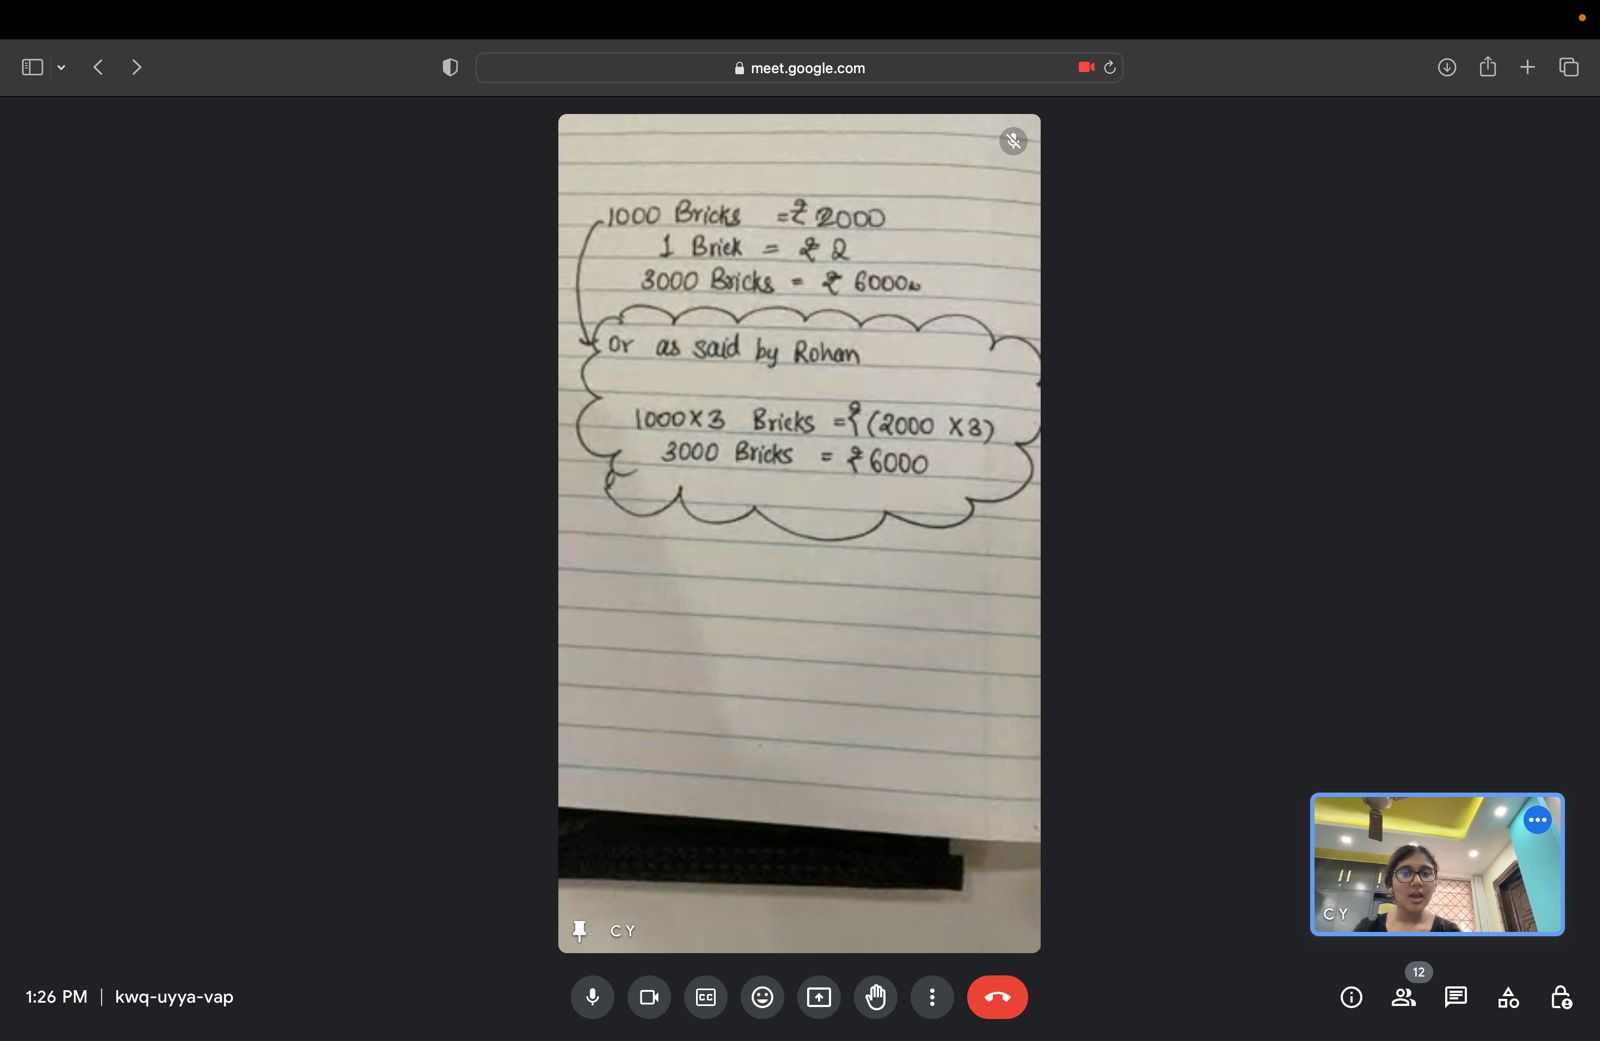 meet.google.com
1000 Bricks = ₹ 2000
1 Brick = ₹ 2
3000 Bricks = ₹ 6000
Or as said by Rohan
1000 X 3 Bricks = ₹ (2000 X 3)
3000 Bricks = ₹ 6000
C Y
C Y
12
1:26 PM | kwq-uyya-vap
CC